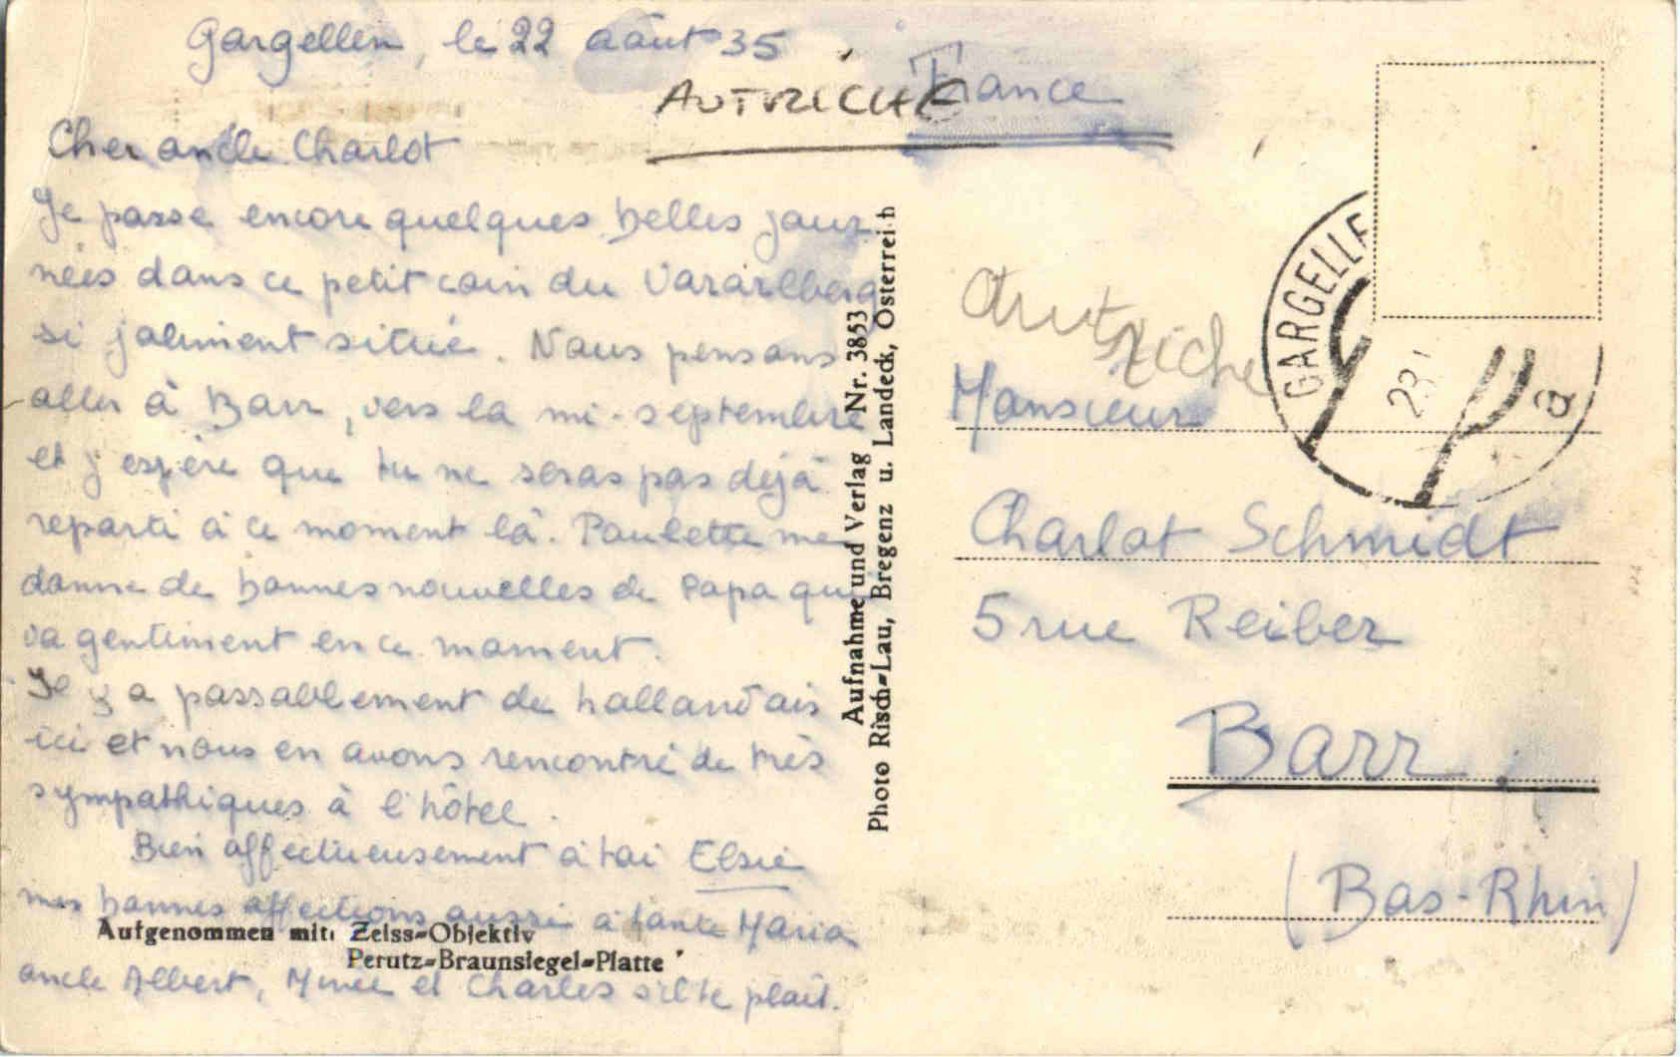 Gargellen, le 22 août 35
Cher oncle Charlot
Je passe encore quelques belles jour-
nées dans ce petit coin du Vorarlberg
si joliment situé. Nous pensons
aller à Barr, vers la mi-septembre
et j'espère que tu ne seras pas déjà
reparti à ce moment là. Paulette me
donne de bonnes nouvelles de Papa qui
va gentiment en ce moment.
Il y a passablement de hollandais
ici et nous en avons rencontré de très
sympathiques à l'hôtel.
Bien affectueusement à toi Elsie
mes bonnes affections aussi à tante Maria
oncle Albert, et Charles s'il te plaît.
Aufgenommen mit: Zeiss-Objektiv
Perutz-Braunsiegel-Platte
Aufnahme und Verlag Nr. 3853
Photo Risch-Lau, Bregenz u. Landeck, Österrei h
France
AUTRICHE
Autriche
GARGELLE
23
a
Monsieur
Charlot Schmidt
5 rue Reiber
Barr.
(Bas-Rhin)